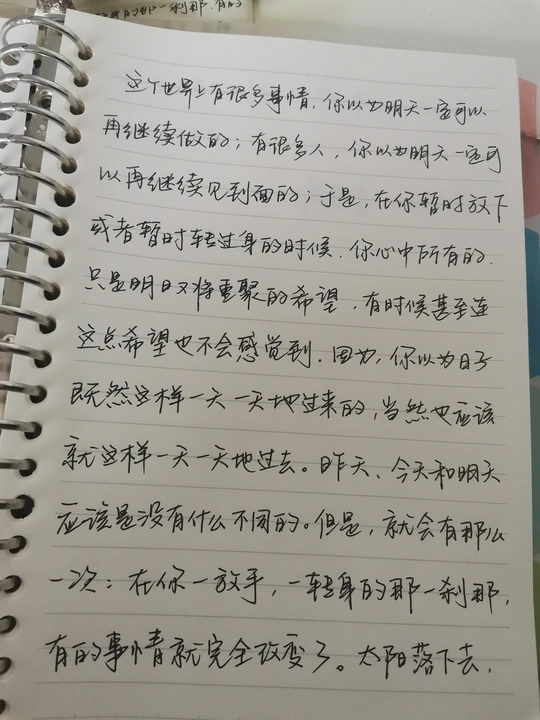 的那一刹那.有的
这个世界上有很多事情，你以为明天一定可以
再继续做的；有很多人，你以为明天一定可
以再继续见到面的；于是，在你暂时放下
或者暂时转过身的时候，你心中所有的，
只是明日又将重聚的希望，有时候甚至连
这点希望也不会感觉到．因为，你以为日子
既然这样一天一天地过来的，当然也应该
就这样一天一天地过去。昨天、今天和明天
应该是没有什么不同的。但是，就会有那么
一次：在你一放手，一转身的那一刹那，
有的事情就完全改变了。太阳落下去，